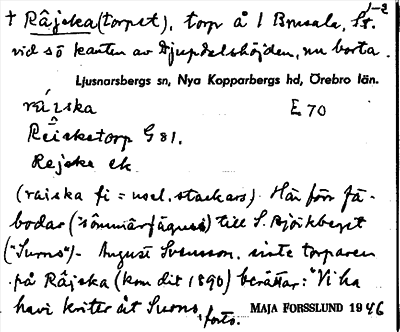 1-2
† Råjska (torpet), torp å 1 Brusala, St.
vid sö kanten av Djupdalshöjden, nu borta.
Ljusnarsbergs sn, Nya Kopparbergs hd, Örebro län.
ráiska E 70
Räisketorp G 81.
Rejska ek
(raiska fi = usel, stackars). Här förr fä-
bodar ("sommarfäguss) till S. Björkberget
("Surns"). August Svensson, siste torparen
på Råjska (kom dit 1890) berättar: "Vi ha
havi kriter åt Surns, forts.
MAJA FORSSLUND 1946